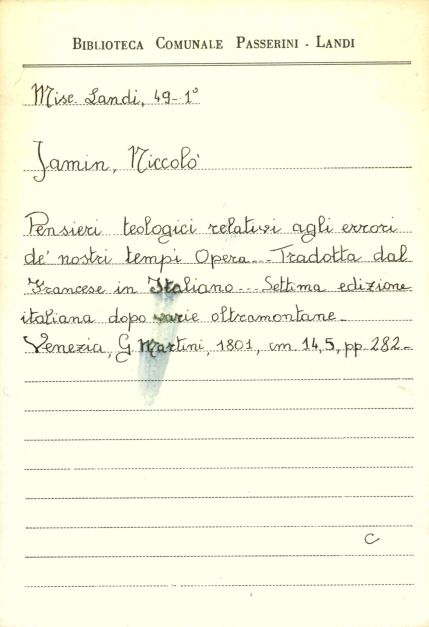 BIBLIOTECA COMUNALE PASSERINI - LANDI
Misc. Landi, 49-1°
Jamin, Niccolò
Pensieri teologici relativi agli errori
de' nostri tempi Opera... Tradotta dal
Francese in Italiano... Settima edizione
italiana dopo varie oltramontane.
Venezia, G. Martini, 1801, cm 14,5, pp 282.
C